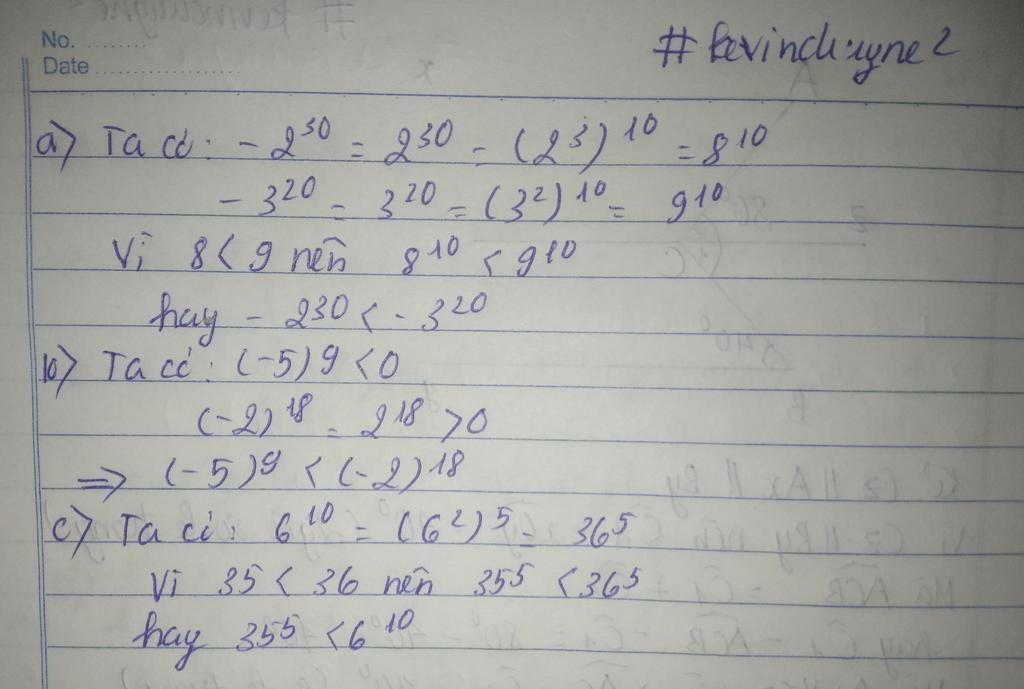 No. .........
Date ....................
#kevinchuyne2
a) Ta có: -2³⁰ = 2³⁰ = (2³)¹⁰ = 8¹⁰
-3²⁰ = 3²⁰ = (3²)¹⁰ = 9¹⁰
Vì 8 < 9 nên 8¹⁰ < 9¹⁰
hay -2³⁰ < -3²⁰
b) Ta có: (-5)⁹ < 0
(-2)¹⁸ = 2¹⁸ > 0
⇒ (-5)⁹ < (-2)¹⁸
c) Ta có: 6¹⁰ = (6²)⁵ = 36⁵
Vì 35 < 36 nên 35⁵ < 36⁵
hay 35⁵ < 6¹⁰